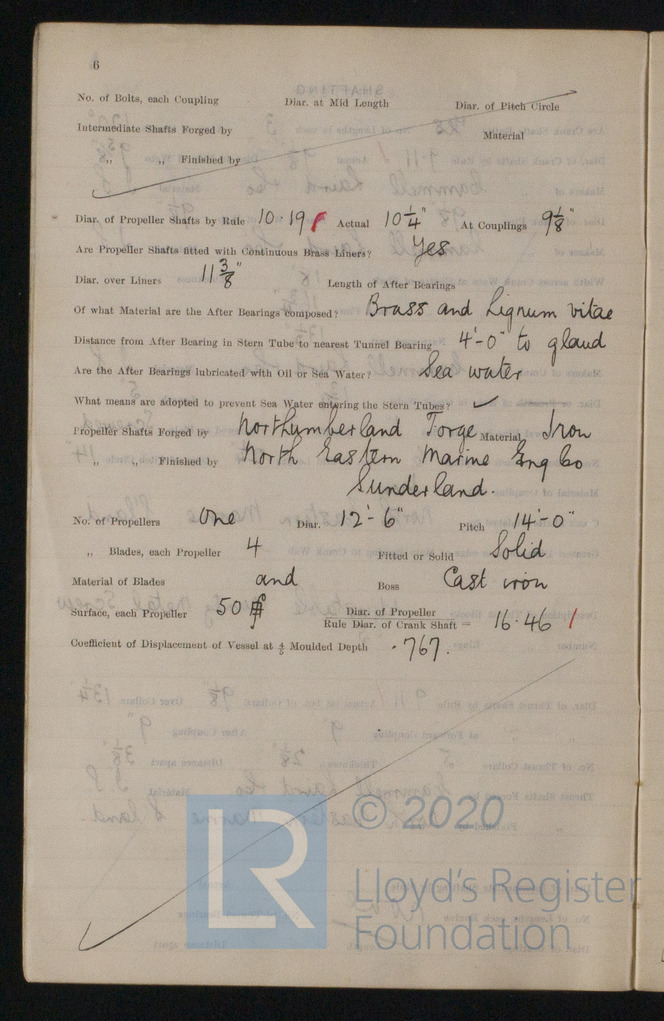 6
No. of Bolts, each Coupling Diar. at Mid Length Diar. of Pitch Circle
Intermediate Shafts Forged by Material
„ „ Finished by
Diar. of Propeller Shafts by Rule 10.19 Actual 10 1/4" At Couplings 9 1/8"
Are Propeller Shafts fitted with Continuous Brass Liners? Yes
Diar. over Liners 11 3/8" Length of After Bearings
Of what Material are the After Bearings composed? Brass and Lignum vitae
Distance from After Bearing in Stern Tube to nearest Tunnel Bearing 4'-0" to gland
Are the After Bearings lubricated with Oil or Sea Water? Sea water
What means are adopted to prevent Sea Water entering the Stern Tubes? ✓
Propeller Shafts Forged by Northumberland Forge Material Iron
„ „ Finished by North Eastern Marine Eng Co
Sunderland.
No. of Propellers One Diar. 12'-6" Pitch 14'-0"
„ Blades, each Propeller 4 Fitted or Solid Solid
Material of Blades and Boss Cast iron
Surface, each Propeller 50
Diar. of Propeller
Rule Diar. of Crank Shaft = 16.46
Coefficient of Displacement of Vessel at Moulded Depth .767.
LR © 2020
Lloyd's Register
Foundation